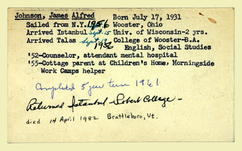 Johnson, James Alfred Born July 17, 1931
Sailed from N.Y. 1956 Wooster, Ohio
Arrived Istanbul Sept. 15 Univ. of Wisconsin-2 yrs.
Arrived Talas Sept 1956 College of Wooster-B.A.
English, Social Studies
'52-Counselor, attendant mental hospital
'55-Cottage parent at Children's Home; Morningside
Work Camps helper
Completed 5 year term 1961
Returned Istanbul - Robert College -
died 14 April 1982 Brattleboro, Vt.